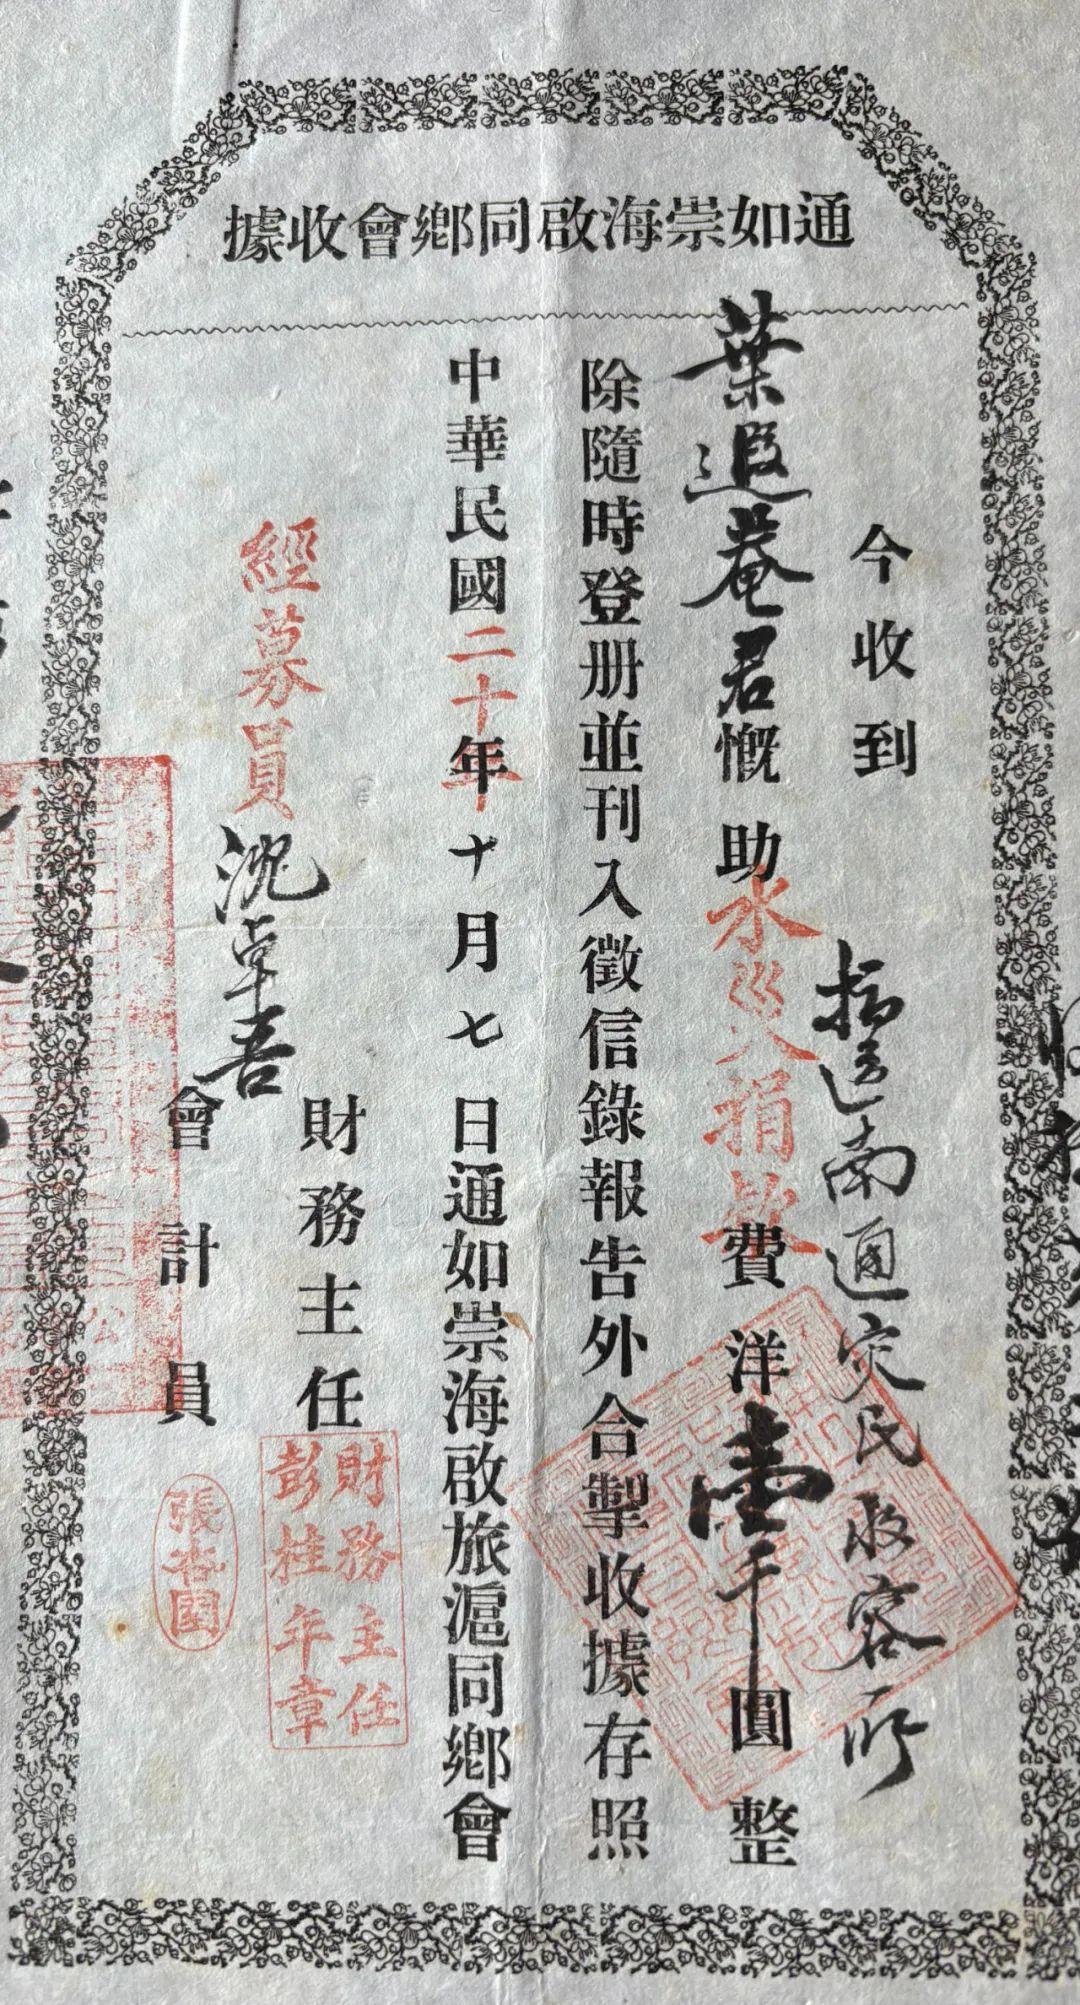 通如崇海啟同鄉會收據
今收到
指送南通灾民收容所
葉遐菴君慨助水災捐費洋壹千圓整
除隨時登册並刊入徵信錄報告外合掣收據存照
中華民國二十年十月七日通如崇海啟旅滬同鄉會
財務主任
財務主任
彭桂年章
經募員沈卓吾
會計員